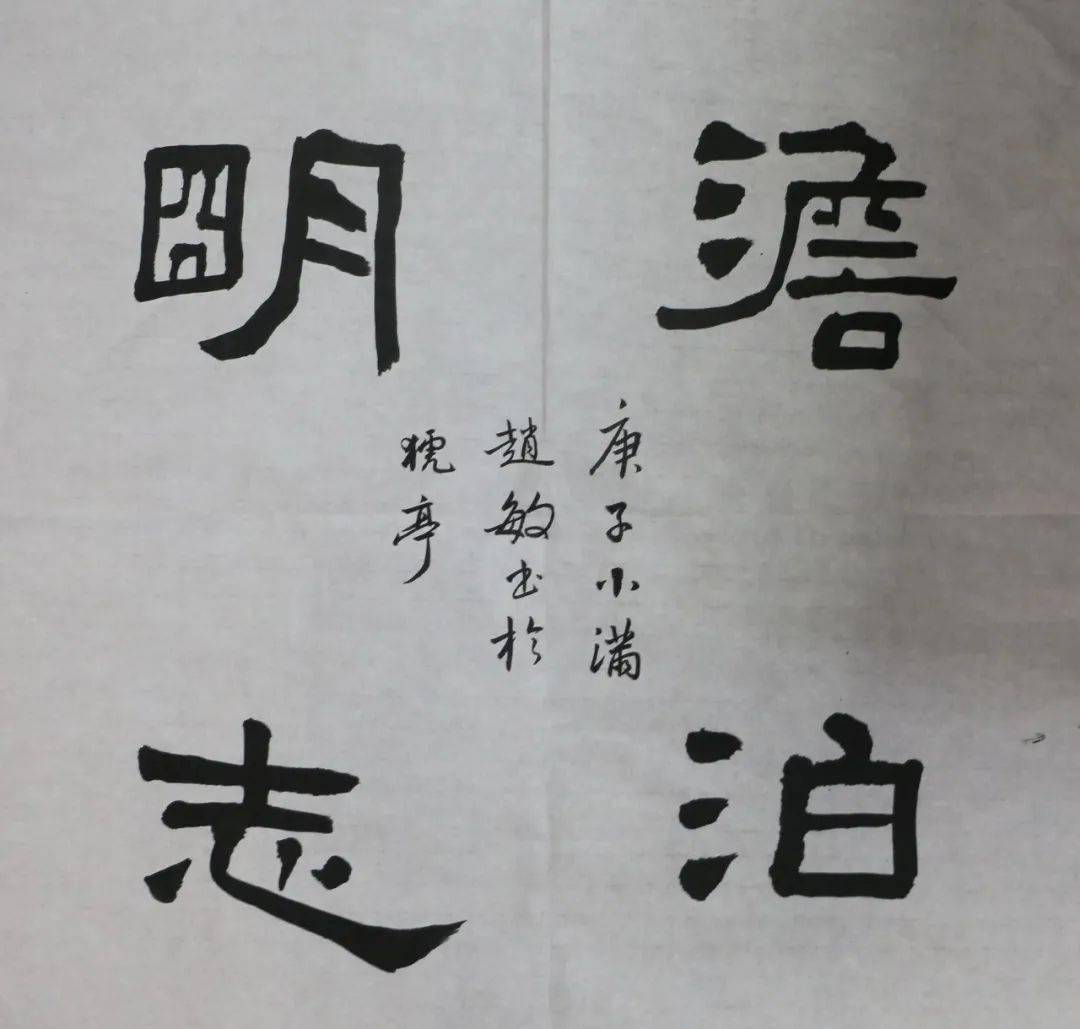 澹泊
明志
庚子小满
趙敏书於
猇亭